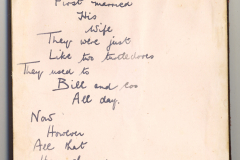 First married
His
Wife
They were just
Like two turtledoves
They used to
Bill and coo
All day.
Now
However
All that